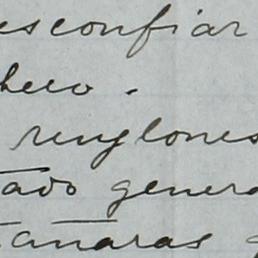 esconfiar
hero.
renglones
tado genera
tañaras g